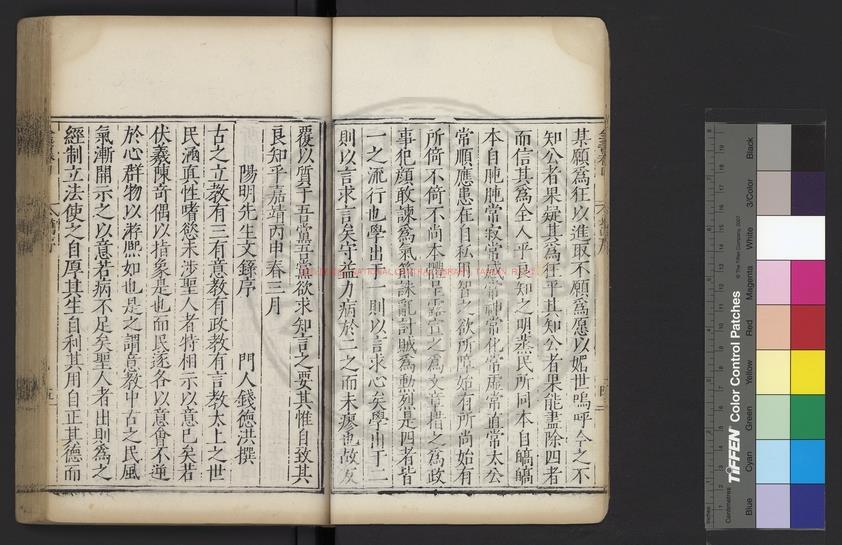 某願為狂以進取不願為愿以媚世嗚呼今之不
知公者果疑其為狂乎其知公者果能盡除四者
而信其為全人乎良知之明蒸民所同本自皜皜
本自肫肫常寂常感常神常化常虛常直常太公
常順應患在自私用智之欲所障始有所尚始有
所倚不倚不尚本體呈露宣之為文章措之為政
事犯顏敢諫為氣節誅亂討賊為勳烈是四者皆
一之流行也學出于一則以言求心矣學出于二
則以言求言矣守益力病於二之而未瘳也故反
覆以質于吾黨吾黨欲求知言之要其惟自致其
良知乎嘉靖丙申春三月
陽明先生文錄序 門人錢德洪撰
古之立教有三有意教有政教有言教太上之世
民涵真性嗜慾未涉聖人者特相示以意已矣若
伏羲陳奇偶以指象是也而民遂各以意會不逆
於心群物以游熙如也是之謂意教中古之民風
氣漸開示之以意若病不足矣聖人者出則為之
經制立法使之自厚其生自利其用自正其德而
TIFFEN Color Control Patches
© The Tiffen Company, 2007
Centimetres
Inches
Blue
Cyan
Green
Yellow
Red
Magenta
White
3/Color
Black